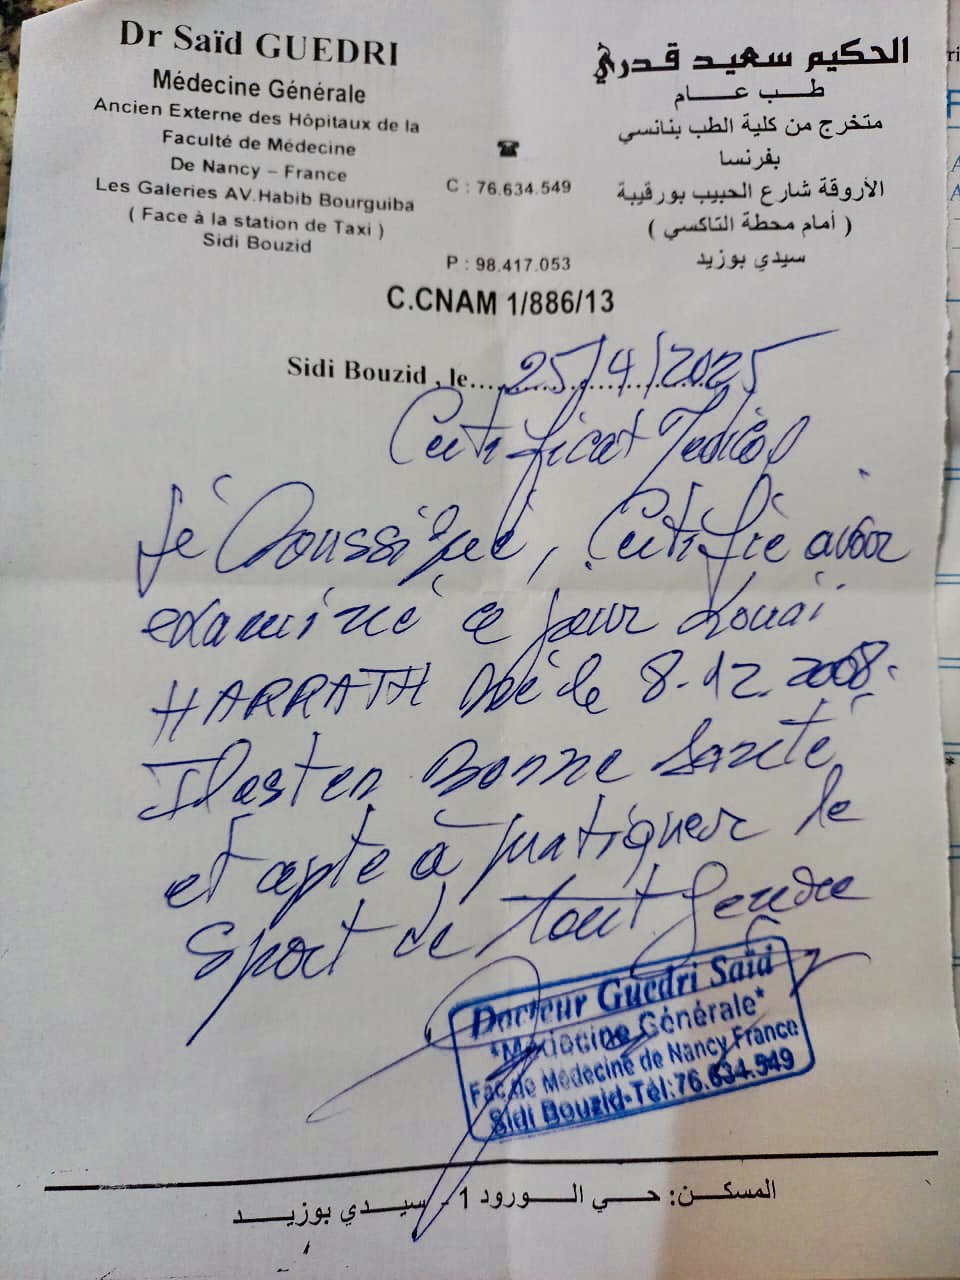 Dr Saïd GUEDRI
Médecine Générale
Ancien Externe des Hôpitaux de la
Faculté de Médecine
De Nancy – France
Les Galeries AV.Habib Bourguiba
( Face à la station de Taxi )
Sidi Bouzid
☎
C : 76.634.549
P : 98.417.053
الحكيم سعيد قدري
طب عام
متخرج من كلية الطب بنانسي
بفرنسا
الأروقة شارع الحبيب بورقيبة
( أمام محطة التاكسي )
سيدي بوزيد
C.CNAM 1/886/13
Sidi Bouzid , le....25/4/2025
Certificat Médical
Je Soussigné, Certifie avoir
examiné ce jour Louai
HARRATH Né le 8.12.2008.
Il est en Bonne Santé
et apte à pratiquer le
Sport de tout Genre
Docteur Guedri Saïd
*Médecine Générale*
Fac de Médecine de Nancy France
Sidi Bouzid-Tél:76.634.549
المسكن: حي الورود 1 - سيدي بوزيد